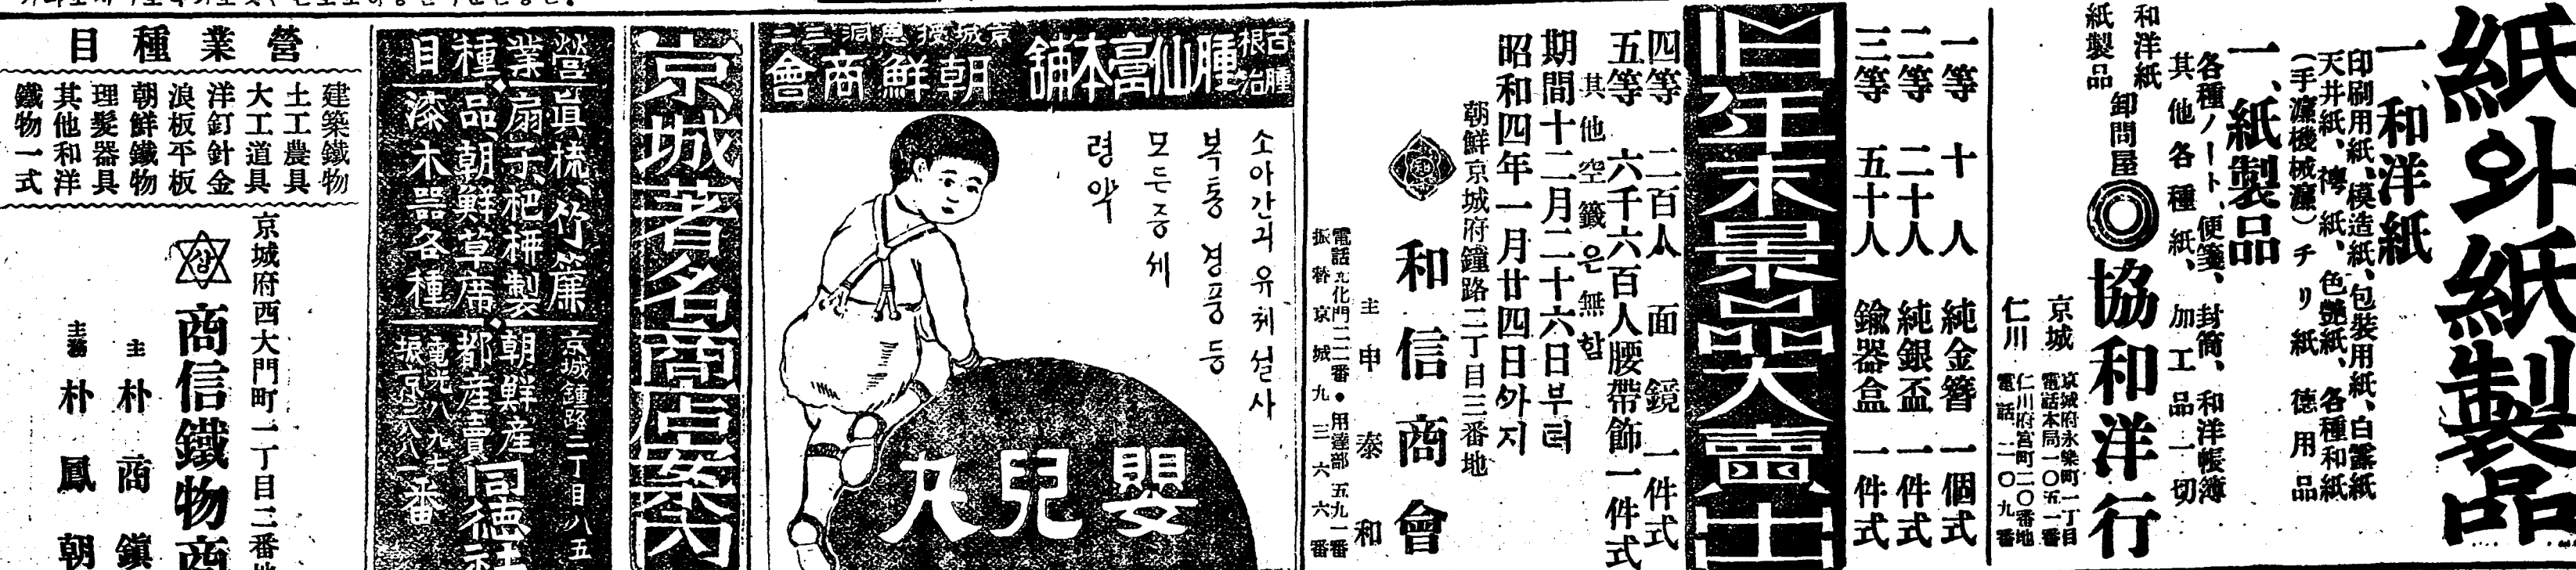 紙와紙製品
一、和洋紙
印刷用紙、模造紙、包裝用紙、白露紙
天井紙、紙、色艶紙、各種和紙
(手漉機械漉)チリ紙 德用品
一、紙製品
各種ノート、便箋、封筒、和洋帳簿
其他各種紙、加工品一切
和洋紙
紙製品
卸問屋
協和洋行
京城
京城府永樂町一丁目
電話本局一〇五一番
仁川
仁川府宮町二〇番地
電話 二一〇九番
一等 十人 純金簪 一個式
二等 二十人 純銀盃 一件式
三等 五十人 鍮器盒 一件式
旧年末景品大賣出
四等 二百人 面鏡 一件式
五等 六千六百人 腰帶飾 一件式
其他空籤은無함
期間十二月二十六日부터
昭和四年一月廿四日까지
朝鮮京城府鐘路二丁目三番地
和信商會
主 申泰和
電話光化門二二番・用達部五九一番
振替京城九三六六番
古腫
根治
腫仙膏本舖
京城授恩洞三二
朝鮮商會
소아간긔유체설사
복통 경풍 등
모든증세
령약
嬰兒丸
京城著名商店案內
營業種目
眞梳、竹簾
扇子、杷柳製
品、朝鮮草席
漆木器各種
京城鍾路二丁目八五
朝鮮產
都產賣
同德社
電光八九七
振京六八一番
營業種目
建築鐵物
土工農具
大工道具
洋釘針金
浪板平板
朝鮮鐵物
理髮器具
其他和洋
鐵物一式
京城府西大門町一丁目二番地
상
商信鐵物商
主 朴商鎭
主務 朴鳳朝